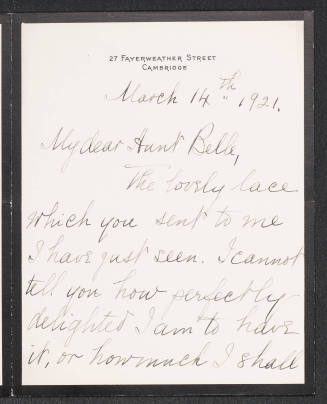 27 FAYERWEATHER STREET
CAMBRIDGE
March 14th 1921.
My dear Aunt Belle,
The lovely lace
which you sent to me
I have just seen. I cannot
tell you how perfectly
delighted I am to have
it, or how much I shall